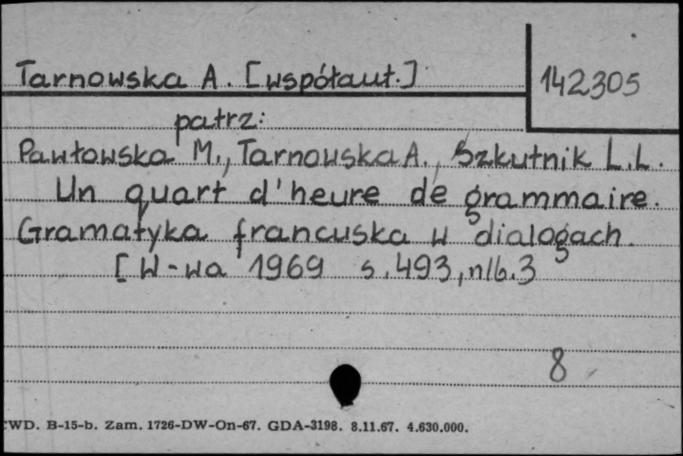 Tarnowska A. [współaut.]
142305
patrz:
Pawłowska M., Tarnowska A., Szkutnik L.L.
Un quart d'heure de grammaire.
Gramatyka francuska w dialogach.
[W-wa 1969 s.493, nlb.3
8
WD. B-15-b. Zam. 1726-DW-On-67. GDA-3198. 8.11.67. 4.630.000.